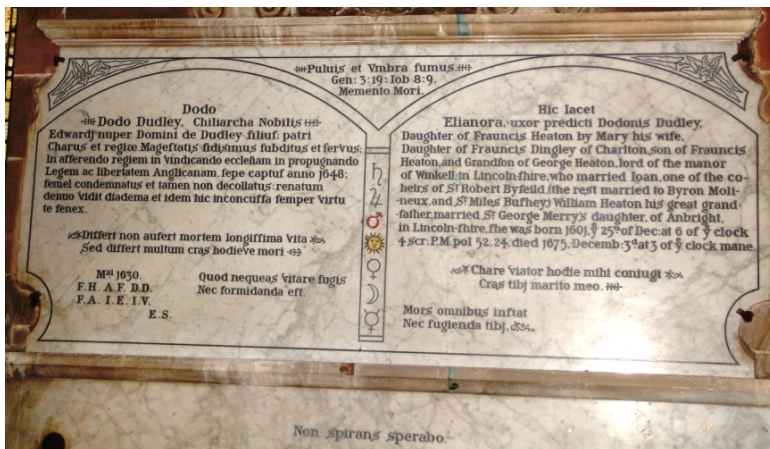 Puluis et Vmbra fumus.
Gen: 3:19: Iob 8:9.
Memento Mori.
Dodo
Dodo Dudley, Chiliarcha Nobilis
Edwardj nuper Domini de Dudley filiuſ: patri
Charus et regiæ Mageſtatis fidisimus ſubditus et ſervus;
In aſſerendo regiem in vindicando eccleſiam in propugnando
Legem ac libertatem Anglicanam, ſepe captuſ anno 1648;
ſemel condemnatus et tamen non decollatus: renatum
denuo vidit diadema et idem hic inconcuſſa ſemper virtu
te ſenex.
Differt non aufert mortem longiſſima vita
Sed differt multum cras hodieve mori
Mai 1630.
F.H A.F. D.D.
F.A. I.E. I.V.
E.S.
Quod nequeas vitare fugis
Nec formidanda eſt.
♄
♃
♂
♀
☽
☿
Hic Iacet
Elianora, uxor predicti Dodonis Dudley,
Daughter of Frauncis Heaton by Mary his wife,
Daughter of Frauncis Dingley of Charlton, son of Frauncis
Heaton, and Grandſon of George Heaton, lord of the manor
of Winkell in Lincoln-ſhire, who married Ioan, one of the co-
heirs of Sr Robert Byfeild, (the rest married to Byron Moli-
neux, and Sr Miles Buſhey) William Heaton his great grand-
father, married Sr George Merry's daughter, of Anbright,
in Lincoln-ſhire, ſhe was born 1601, ye 25th of Dec: at 6 of ye clock
4 scr: P.M. pol 52. 24. died 1675, Decemb: 3d at 3 of ye clock mane.
Chare viator hodie mihi coniugi
Cras tibj marito meo.
Mors omnibus inſtat
Nec fugienda tibj.
Non spirans sperabo.